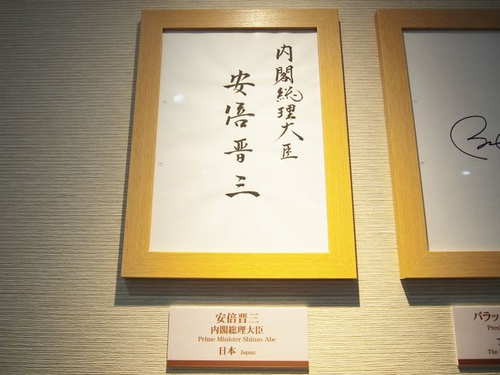 内閣総理大臣
安倍晋三
安倍晋三
内閣総理大臣
Prime Minister Shinzo Abe
日本 Japan
バラッ
Pres
The